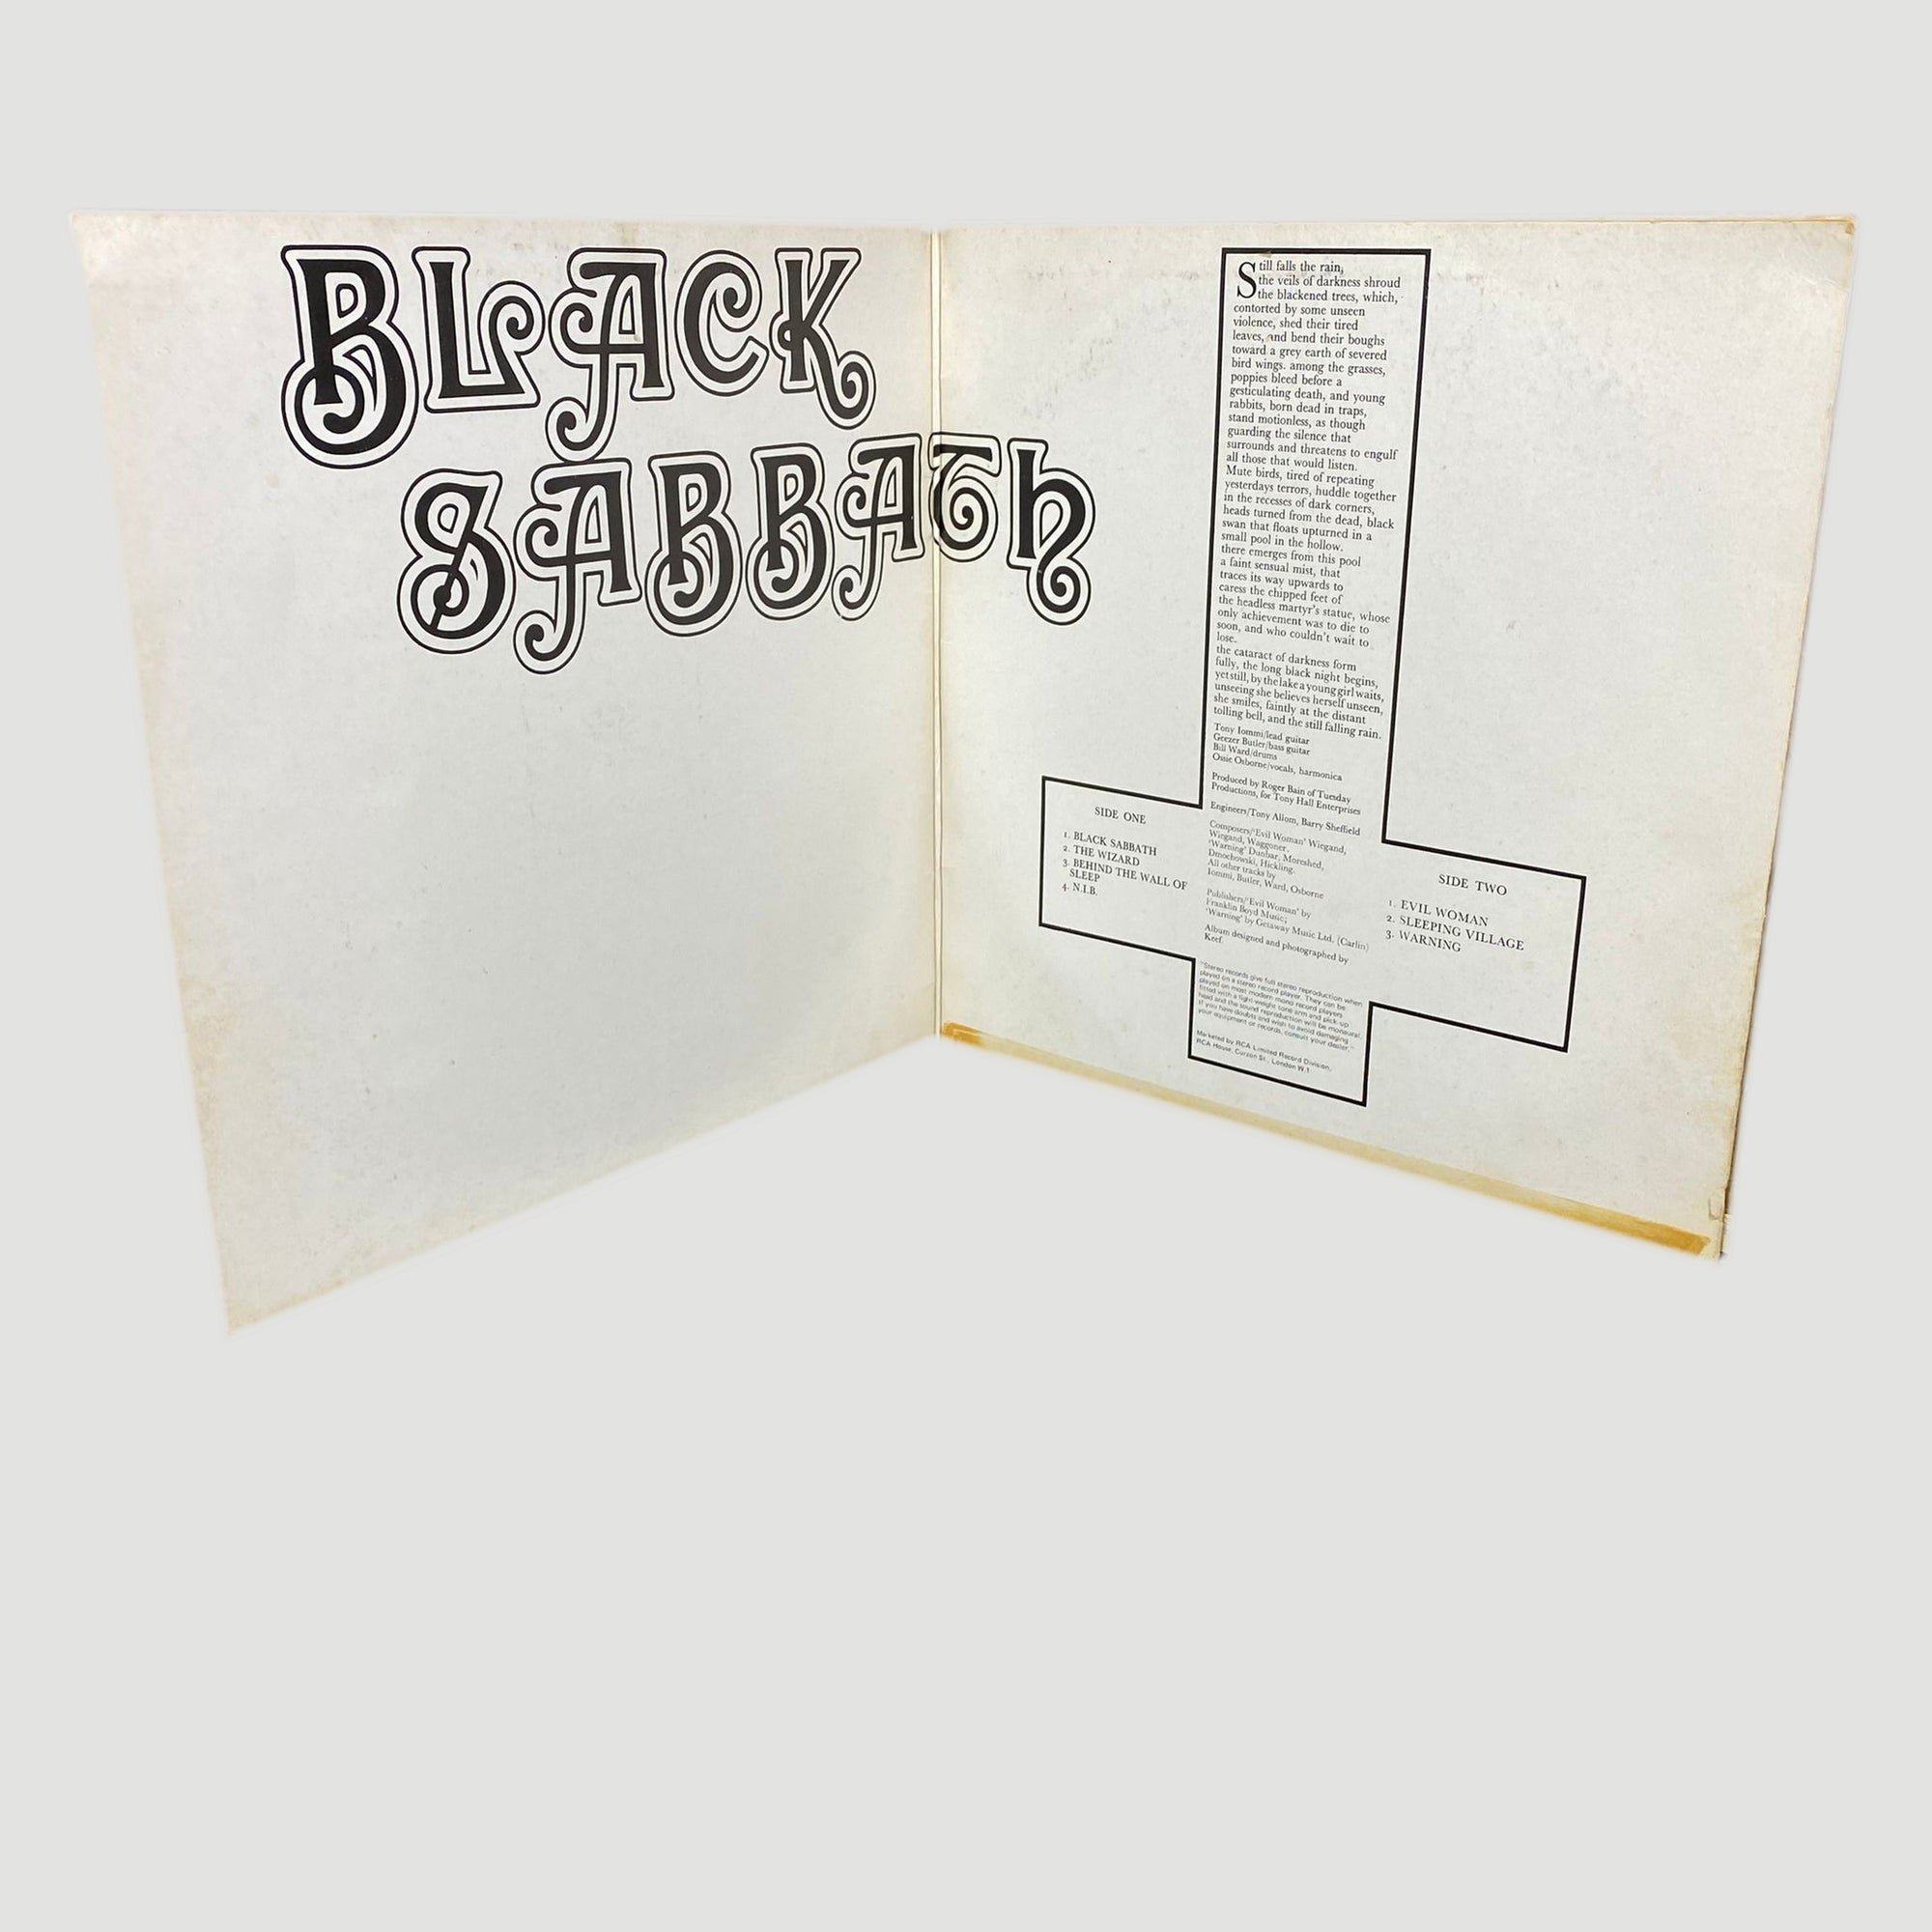 BLACK
SABBATH
Still falls the rain,
the veils of darkness shroud
the blackened trees, which,
contorted by some unseen
violence, shed their tired
leaves, and bend their boughs
toward a grey earth of severed
bird wings. among the grasses,
poppies bleed before a
gesticulating death, and young
rabbits, born dead in traps,
stand motionless, as though
guarding the silence that
surrounds and threatens to engulf
all those that would listen.
Mute birds, tired of repeating
yesterdays terrors, huddle together
in the recesses of dark corners,
heads turned from the dead, black
swan that floats upturned in a
small pool in the hollow.
there emerges from this pool
a faint sensual mist, that
traces its way upwards to
caress the chipped feet of
the headless martyr's statue, whose
only achievement was to die to
soon, and who couldn't wait to
lose.
the cataract of darkness form
fully, the long black night begins,
yet still, by the lake a young girl waits,
unseeing she believes herself unseen,
she smiles, faintly at the distant
tolling bell, and the still falling rain.
Tony Iommi/lead guitar
Geezer Butler/bass guitar
Bill Ward/drums
Ossie Osborne/vocals, harmonica
Produced by Roger Bain of Tuesday
Productions, for Tony Hall Enterprises
Engineers/Tony Allom, Barry Sheffield
Composers/'Evil Woman' Wiegand,
Wiegand, Waggoner.
'Warning' Dunbar, Moreshed,
Dmochowski, Hickling.
All other tracks by
Iommi, Butler, Ward, Osborne
Publishers/'Evil Woman' by
Franklin Boyd Music;
'Warning' by Getaway Music Ltd. (Carlin)
Album designed and photographed by
Keef.
"Stereo records give full stereo reproduction when
played on a stereo record player. They can be
played on most modern mono record players
fitted with a light weight tone arm and pick-up
head and the sound reproduction will be monaural.
If you have doubts and wish to avoid damaging
your equipment or records, consult your dealer."
Marketed by RCA Limited Record Division,
RCA House, Curzon St., London W.1
SIDE ONE
1. BLACK SABBATH
2. THE WIZARD
3. BEHIND THE WALL OF
SLEEP
4. N.I.B.
SIDE TWO
1. EVIL WOMAN
2. SLEEPING VILLAGE
3. WARNING